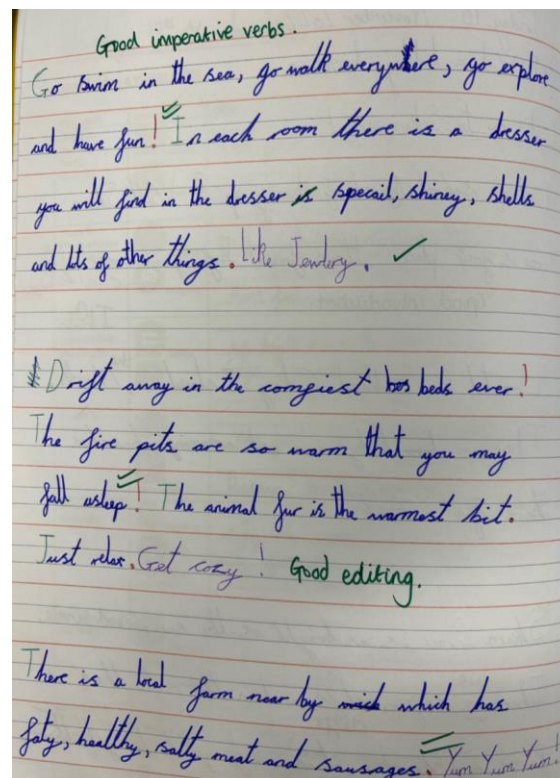 Good imperative verbs.
Go swim in the sea, go walk everywhere, go explore
and have fun! In each room there is a dresser
you will find in the dresser is specail, shiney, shells
and lots of other things. Like Jewlery.
Drift away in the comgiest beds ever!
The fire pits are so warm that you may
fall asleep! The animal fur is the warmest bit.
Just relax. Get cozy! Good editing.
There is a local farm near by which has
faty, healthy, salty meat and sausages. Yum Yum Yum!